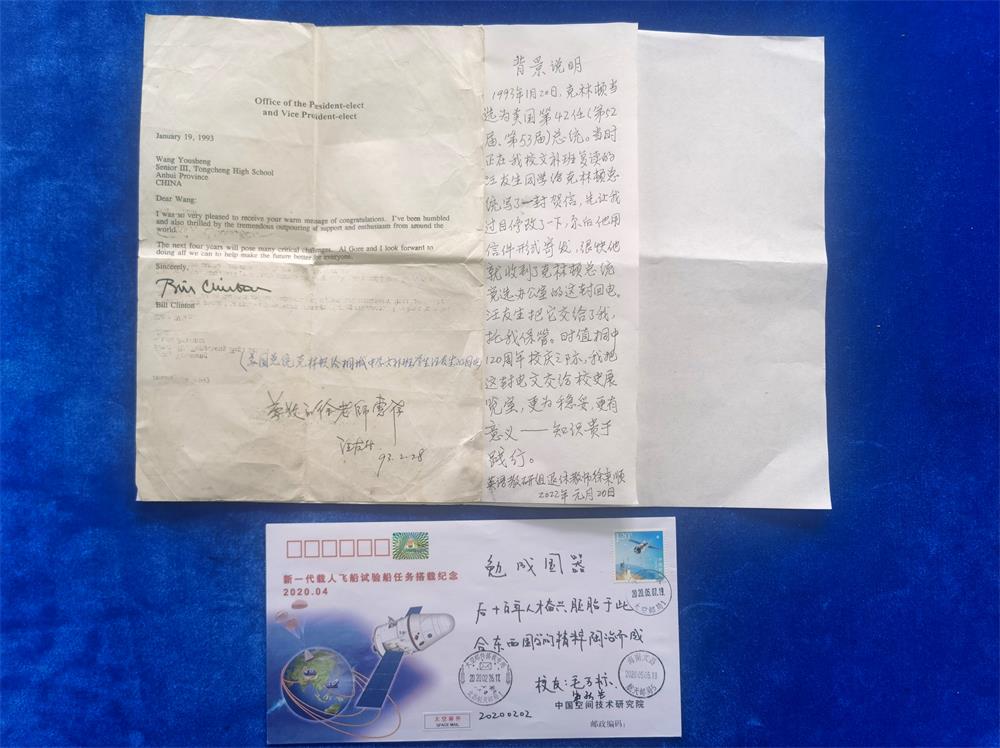 Office of the President-elect
and Vice President-elect
January 19, 1993
Wang Yousheng
Senior III, Tongcheng High School
Anhui Province
CHINA
Dear Wang:
I was so very pleased to receive your warm message of congratulations. I've been humbled
and also thrilled by the tremendous outpouring of support and enthusiasm from around the
world.
The next four years will pose many critical challenges. Al Gore and I look forward to
doing all we can to help make the future better for everyone.
Sincerely,
Bill Clinton
Bill Clinton
(美国总统克林顿给桐城中学文科班学生汪友生的回电)
徐老师惠存
汪友生
93.2.28
背景说明
1993年1月20日,克林顿当
选为美国第42任(第52
届、第53届)总统。当时
正在我校文补班复读的
汪友生同学给克林顿总
统写了一封贺信,先让我
过目修改了一下,尔后他用
信件形式寄发,很快他
就收到了克林顿总统
竞选办公室的这封回电。
汪友生把它交给了我,
托我保管。时值桐中
120周年校庆之际,我把
这封电文交给校史展
览室,更为稳妥,更有
意义——知识贵于
践行。
英语教研组退休教师徐 顺
2022年元月20日
新一代载人飞船试验船任务搭载纪念
2020.04
太空邮件
SPACE MAIL
20200202
1.20
2020.05.07.19
太空邮局
勉成国器
后十百年人才奋兴胚胎于此
合东西国学问精粹陶冶而成
校友:毛万标
中国空间技术研究院
邮政编码:
海南文昌
2020.05.05.18
航天邮局